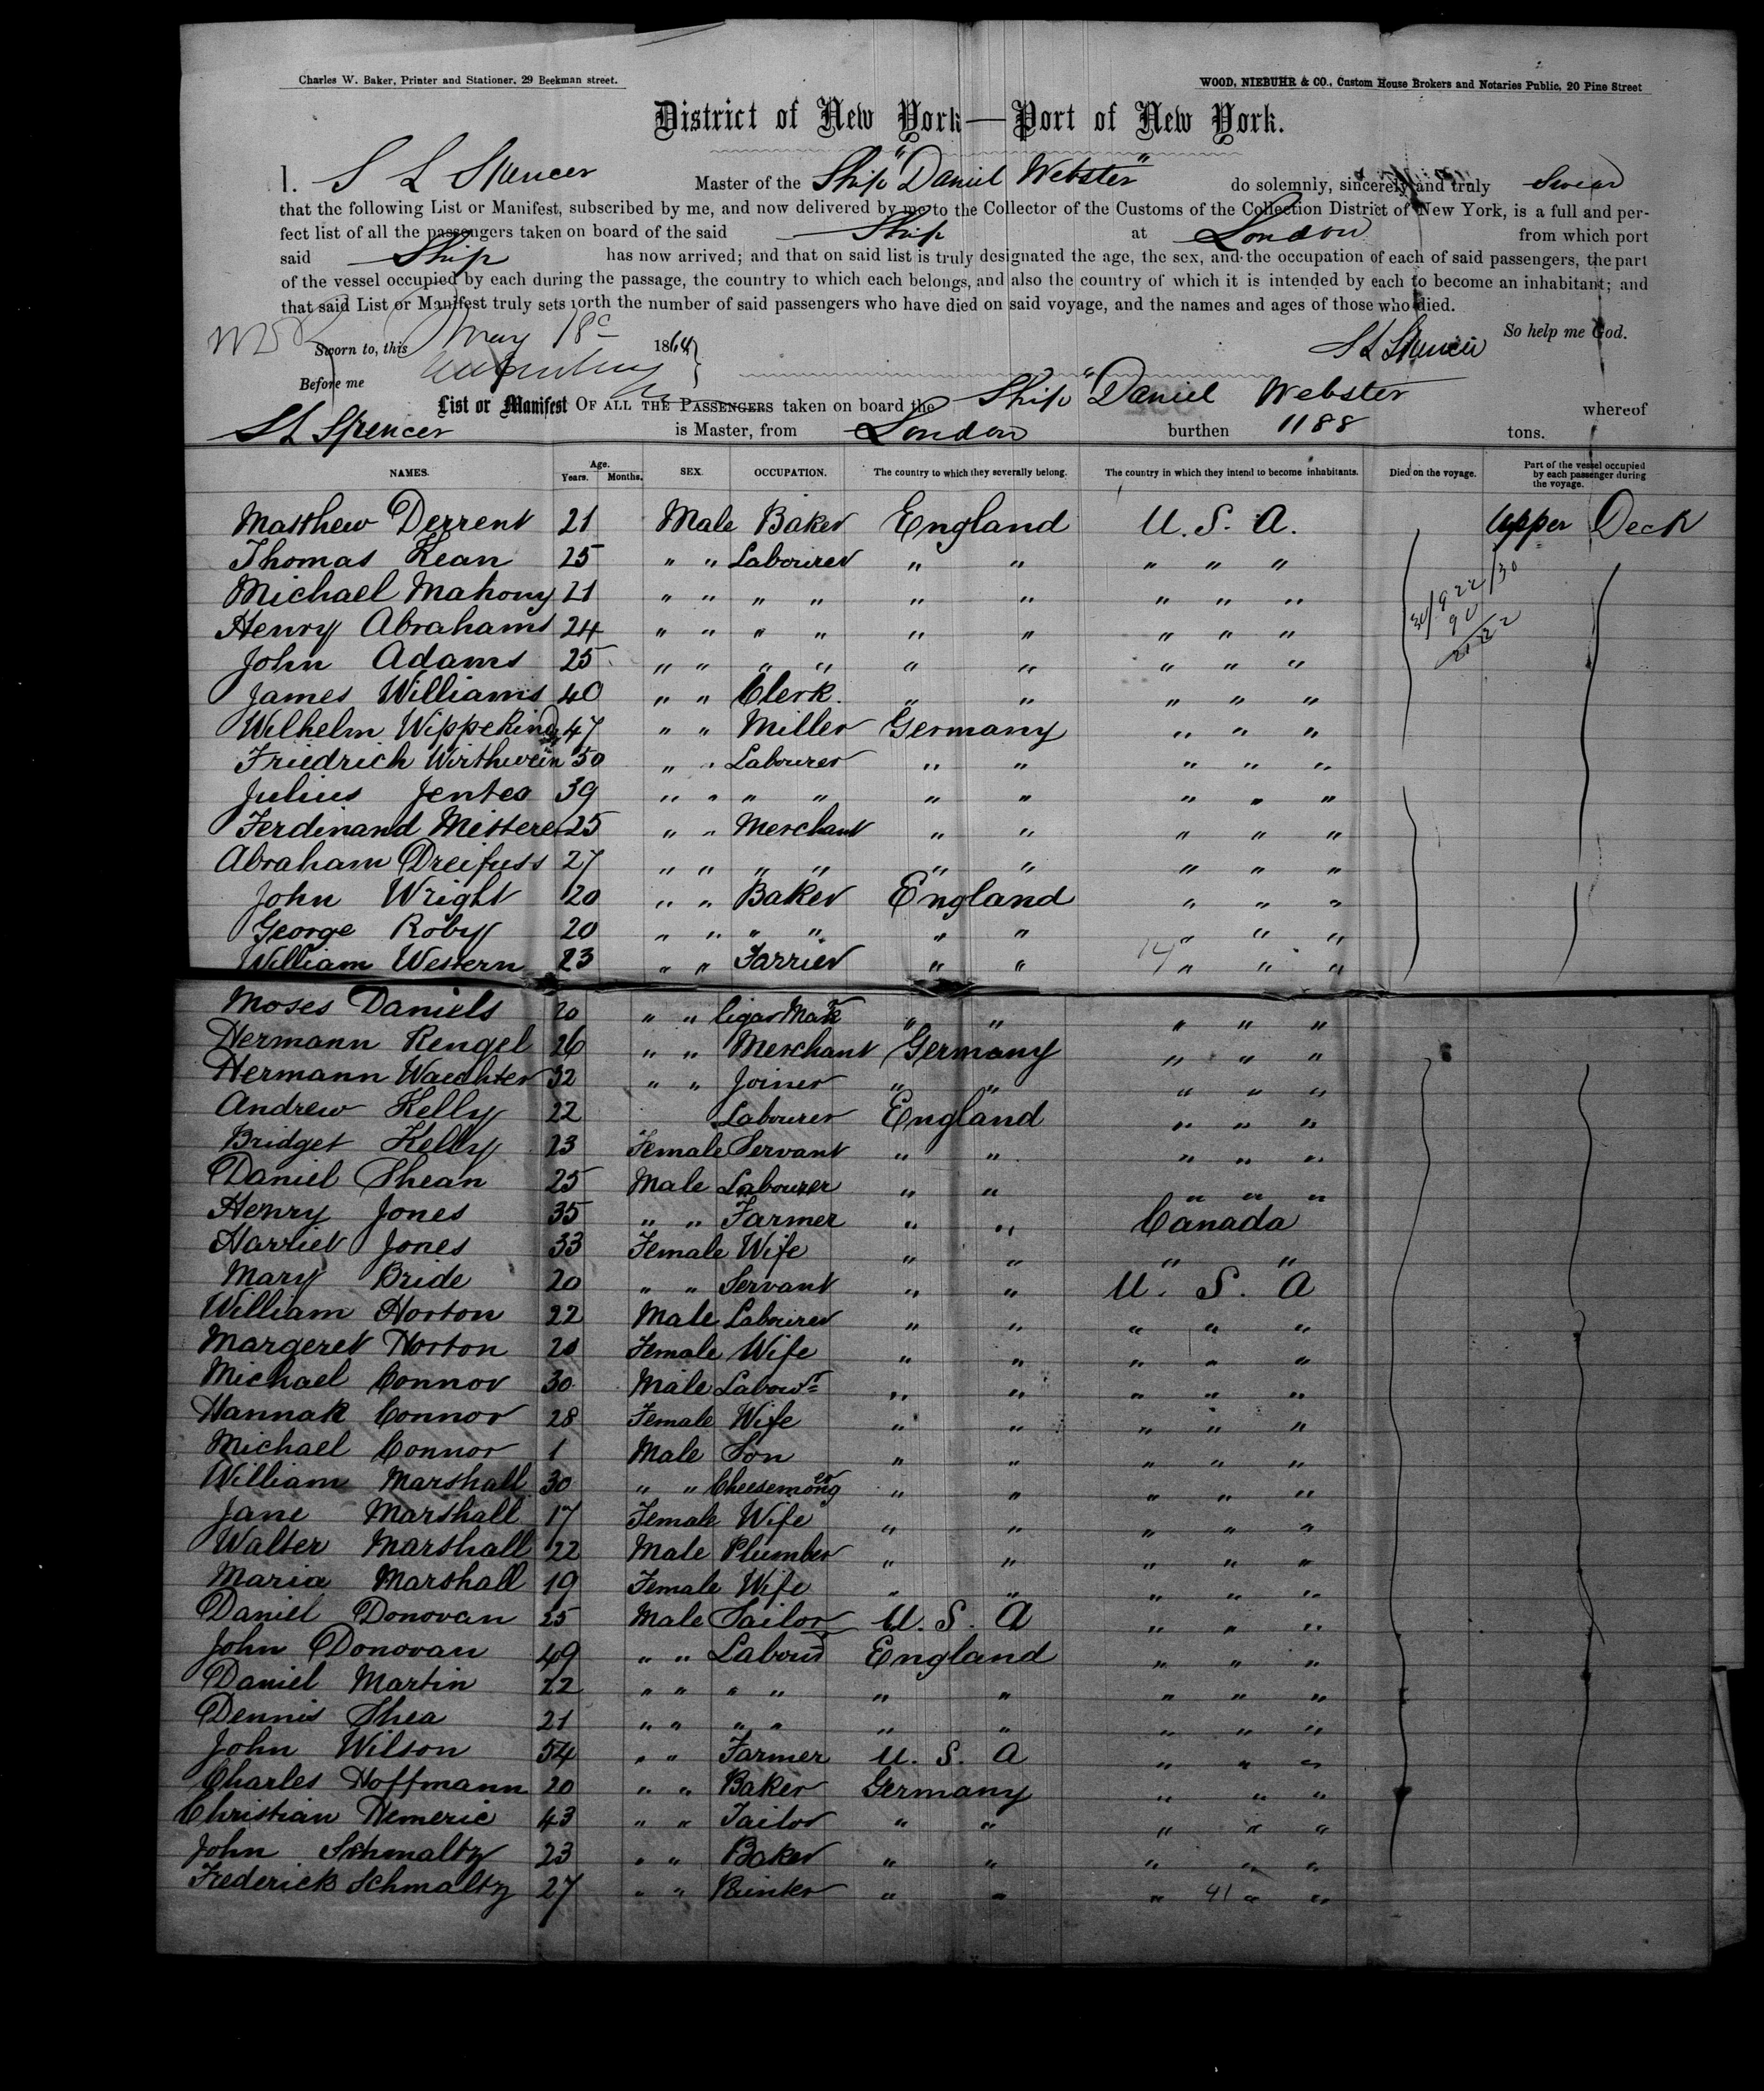 Charles W. Baker, Printer and Stationer, 29 Beekman street. WOOD, NIEBUHR & CO., Custom House Brokers and Notaries Public, 20 Pine Street
District of New York—Port of New York.
I, S L Spencer Master of the Ship "Daniel Webster" do solemnly, sincerely and truly Swear
that the following List or Manifest, subscribed by me, and now delivered by me to the Collector of the Customs of the Collection District of New York, is a full and per-
fect list of all the passengers taken on board of the said Ship at London from which port
said Ship has now arrived; and that on said list is truly designated the age, the sex, and the occupation of each of said passengers, the part
of the vessel occupied by each during the passage, the country to which each belongs, and also the country of which it is intended by each to become an inhabitant; and
that said List or Manifest truly sets forth the number of said passengers who have died on said voyage, and the names and ages of those who died.
So help me God.
Sworn to, this May 18 1864 S L Spencer
Before me
List or Manifest OF ALL THE PASSENGERS taken on board the Ship "Daniel Webster whereof
S L Spencer is Master, from London burthen 1188 tons.
NAMES. Age. Years. Months. SEX. OCCUPATION. The country to which they severally belong. The country in which they intend to become inhabitants. Died on the voyage. Part of the vessel occupied by each passenger during the voyage.
Matthew Derrent 21 Male Baker England U. S. A. Upper Deck
Thomas Kean 25 " " Labourer " " " " "
Michael Mahony 21 " " " " " " " " "
Henry Abrahams 24 " " " " " " " " "
John Adams 25 " " " " " " " " "
James Williams 40 " " Clerk. " " " " "
Wilhelm Wippeking 47 " " Miller Germany " " "
Friedrich Wirthwein 50 " " Labourer " " " " "
Julius Jentes 39 " " " " " " " " "
Ferdinand Misterer 25 " " Merchant " " " " "
Abraham Dreifuss 27 " " " " " " " " "
John Wright 20 " " Baker England " " "
George Roby 20 " " " " " " " " "
William Western 23 " " Farrier " " 14 " " "
Moses Daniels 20 " " Cigar Makr " " " " "
Hermann Rengel 26 " " Merchant Germany " " "
Hermann Waechter 32 " " Joiner " " " " "
Andrew Kelly 22 Labourer England " " "
Bridget Kelly 23 Female Servant " " " " "
Daniel Shean 25 Male Labourer " " " " "
Henry Jones 35 " " Farmer " " Canada
Harriet Jones 33 Female Wife " " " "
Mary Bride 20 " " Servant " " U. S. A
William Horton 22 Male Labourer " " " " "
Margeret Horton 20 Female Wife " " " " "
Michael Connor 30 Male Labourr " " " " "
Hannah Connor 28 Female Wife " " " " "
Michael Connor 1 Male Son " " " " "
William Marshall 30 " " Cheesemonger " " " " "
Jane Marshall 17 Female Wife " " " " "
Walter Marshall 22 Male Plumber " " " " "
Maria Marshall 19 Female Wife " " " " "
Daniel Donovan 25 Male Sailor U. S. A " " "
John Donovan 49 " " Labourr England " " "
Daniel Martin 22 " " " " " " " " "
Dennis Shea 21 " " " " " " " " "
John Wilson 54 " " Farmer U. S. A " " "
Charles Hoffmann 20 " " Baker Germany " " "
Christian Hemeric 43 " " Tailor " " " " "
John Schmaltz 23 " " Baker " " " " "
Frederick Schmaltz 27 " " Printer " " " 41 " "